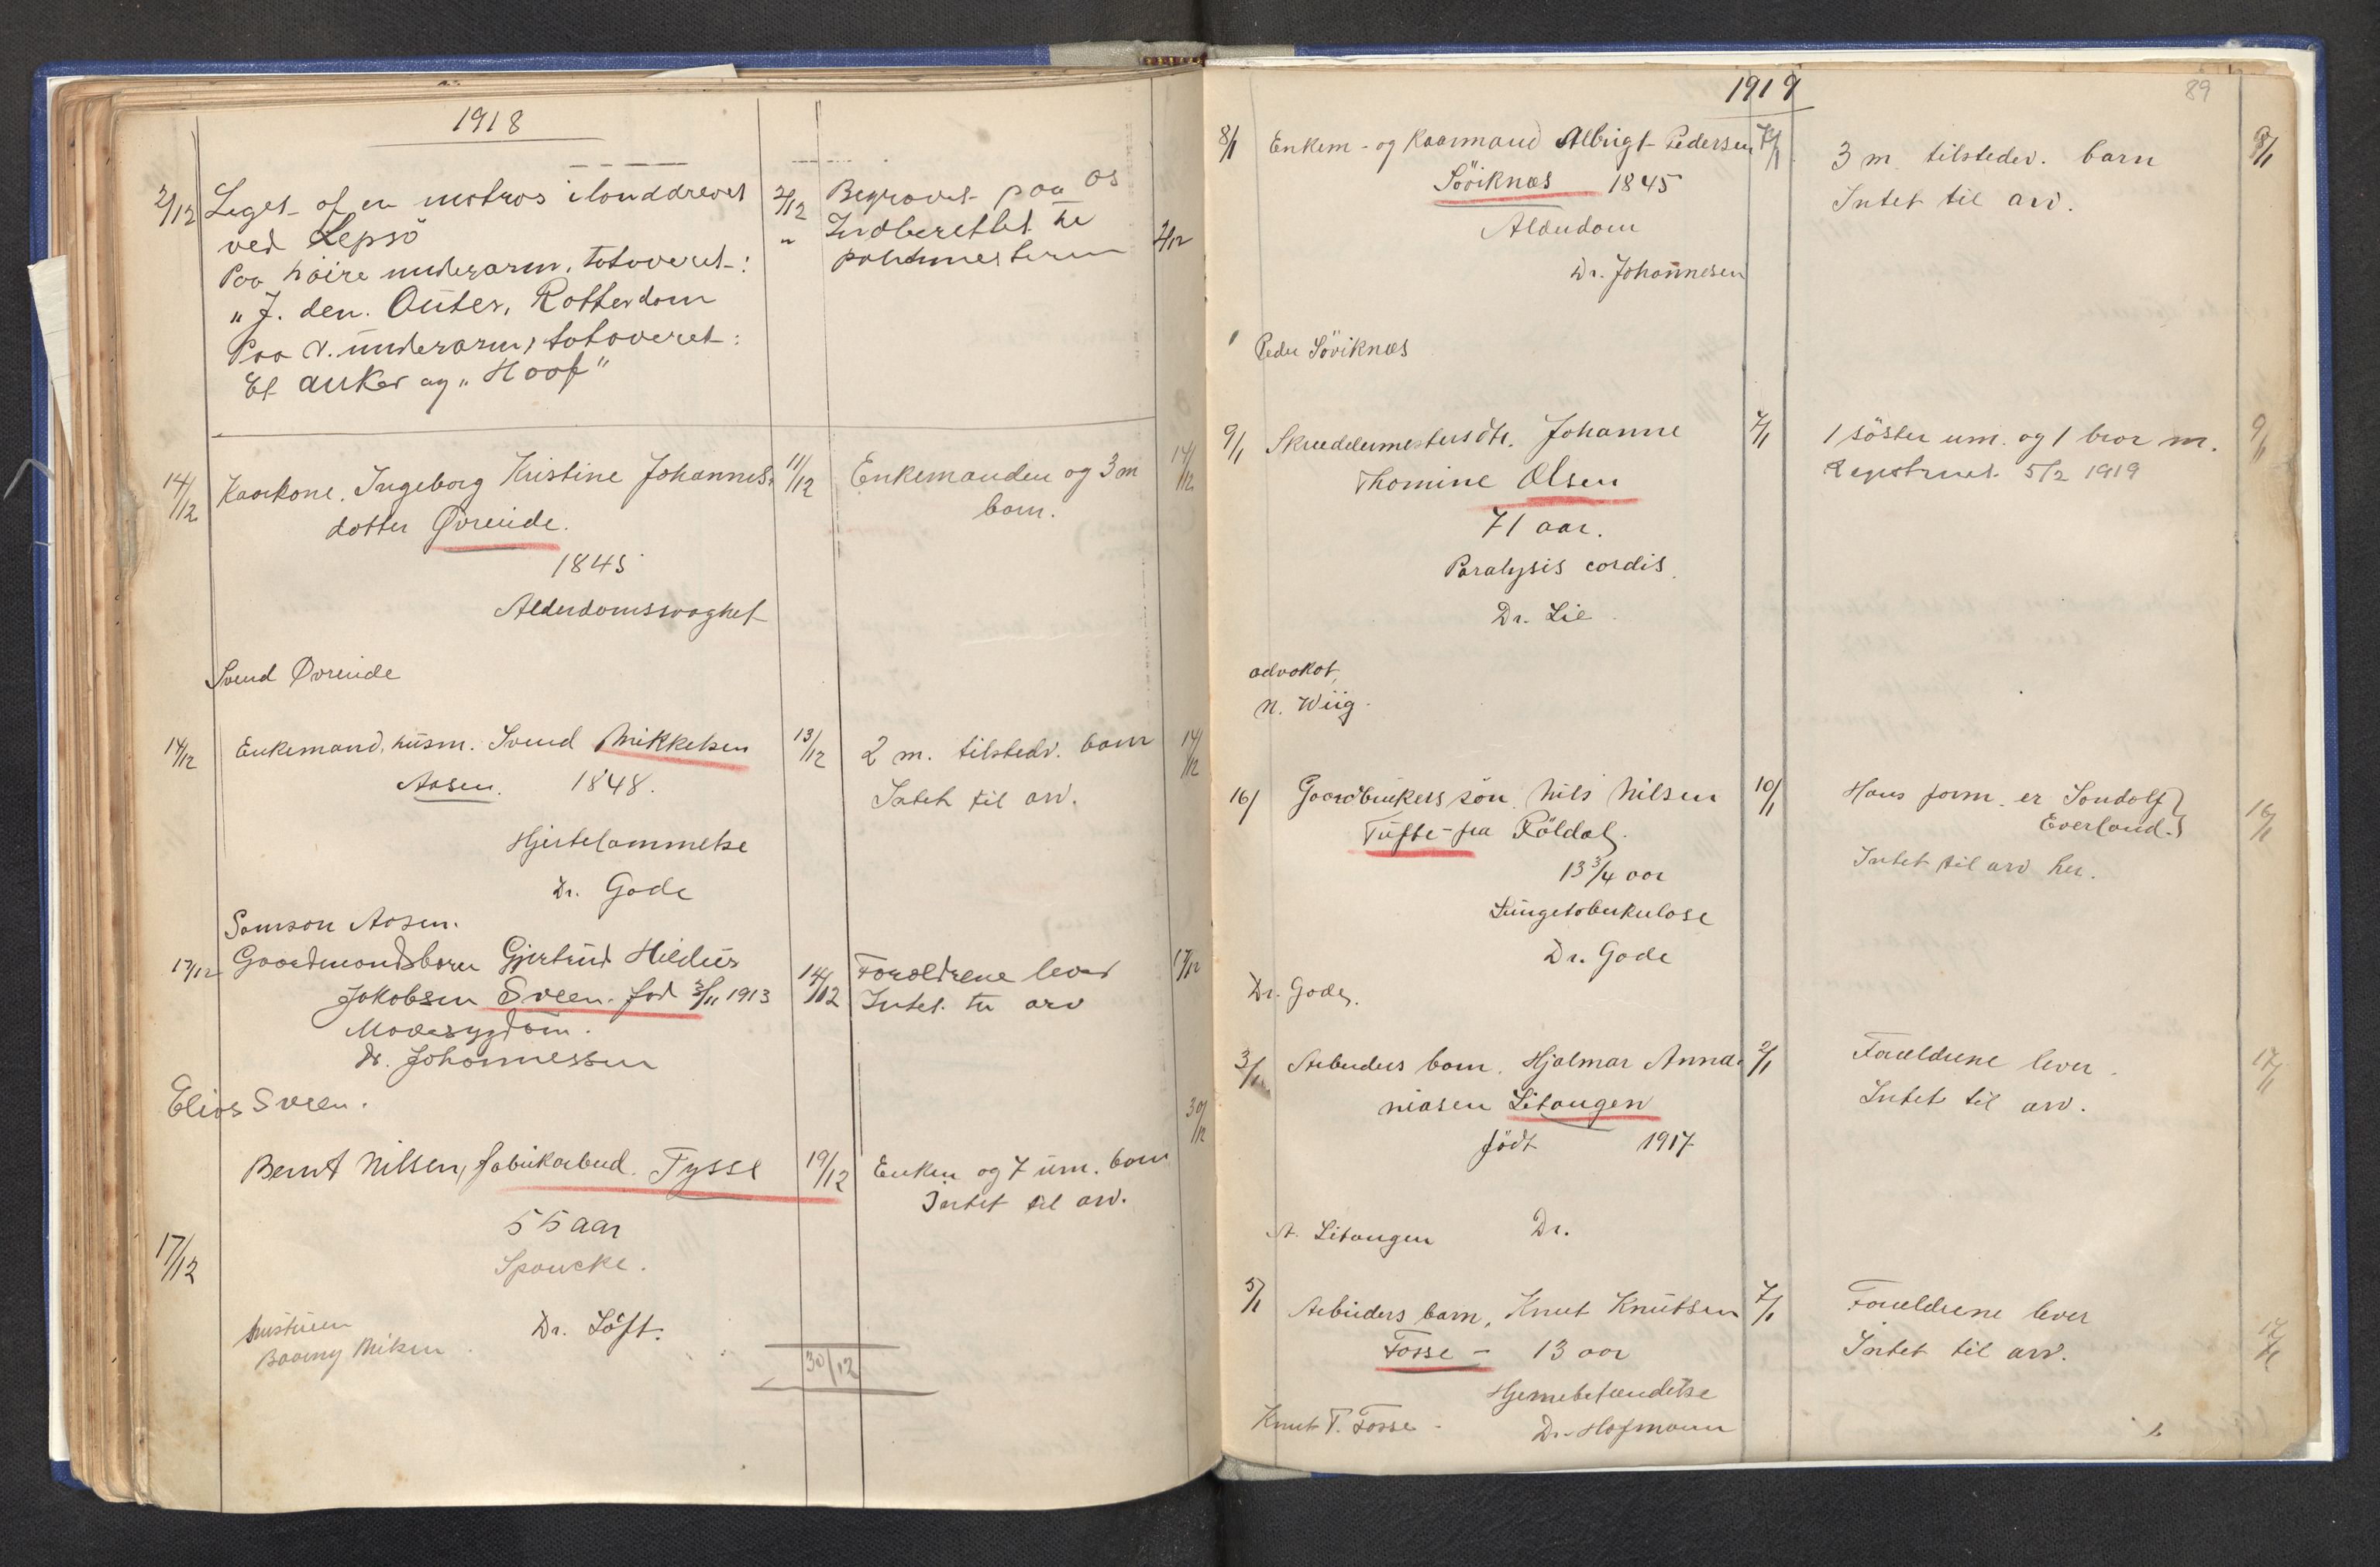 1918
2/12 Liget af en matros ilanddrevet 2/12 Begravet paa Os
ved Lepsö " Indberettet til
Paa höire underarm, tatoveret: politimesteren 2/12
"J. den. Outer, Rotterdam
Paa v. underarm, tatoveret:
Et anker og "Hoof"
14/12 Kaarkone. Ingeborg Kristine Johannes- 11/12 Enkemanden og 3 m 14/12
dotter Øvreide. barn.
1845
Alderdomssvaghet
Svend Øvreide
14/12 Enkemand, husm. Svend Mikkelsen 13/12 2 m. tilstedv. barn 14/12
Aasen. 1848. Intet til arv.
Hjertelammelse
Dr. Gade
Samson Aasen.
17/12 Gaardmandsbarn Gjertrud Hildur 14/12 Forældrene lever 17/12
Jakobsen Sveen. fød 3/11 1913 Intet til arv
Mavesygdom.
Dr. Johannessen
Elias Sveen.
30/12
Bernt Nilsen, fabrikarbeid. Tysse 19/12 Enken og 7 um. barn
Intet til arv.
55 aar
17/12
Spanske.
Dr. Löft.
30/12
1919
89
8/1 Enkem- og Kaarmand Albrigt Pedersen 3 m tilstedev. barn 8/1
Söviknæs 1845 Intet til arv.
Alderdom
Dr. Johannesen
Peder Söviknæs
9/1 Skræddermestersdtr. Johanne 7/1 1 söster um. og 1 bror m. 9/1
Thomine Olsen Registreret 5/2 1919
71 aar.
Paralysis cordis
Dr. Lie
advokat,
N. Wiig.
16/ Gaardbrukers sön Nils Nilsen 10/1 Hans form. er Sandolf 16/1
Tufte - fra Röldal. Everland.
13 3/4 aar Intet til arv her.
Lungetoberkulose
Dr. Gade
Dr. Gade.
3/1 Arbeiders barn. Hjalmar Anna- 2/1 Forældrene lever. 17/1
niasen Litangen Intet til arv.
født 1917
A. Litangen Dr.
5/1 Arbeiders barn, Knut Knutsen 7/1 Forældrene lever
Fosse - 13 aar Intet til arv.
Hjernebetændelse
Knut T. Fosse - Dr. Hofmann